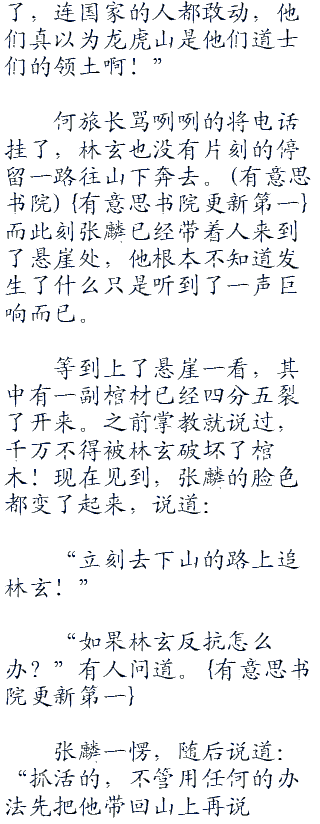 了，连国家的人都敢动，他
们真以为龙虎山是他们道士
们的领土啊！”
何旅长骂咧咧的将电话
挂了，林玄也没有片刻的停
留一路往山下奔去。(有意思
书院) {有意思书院更新第一}
而此刻张麟已经带着人来到
了悬崖处，他根本不知道发
生了什么只是听到了一声巨
响而已。
等到上了悬崖一看，其
中有一副棺材已经四分五裂
了开来。之前掌教就说过，
千万不得被林玄破坏了棺
木！现在见到，张麟的脸色
都变了起来，说道：
“立刻去下山的路上追
林玄！”
“如果林玄反抗怎么
办？”有人问道。{有意思书
院更新第一}
张麟一愣，随后说道：
“抓活的，不管用任何的办
法先把他带回山上再说